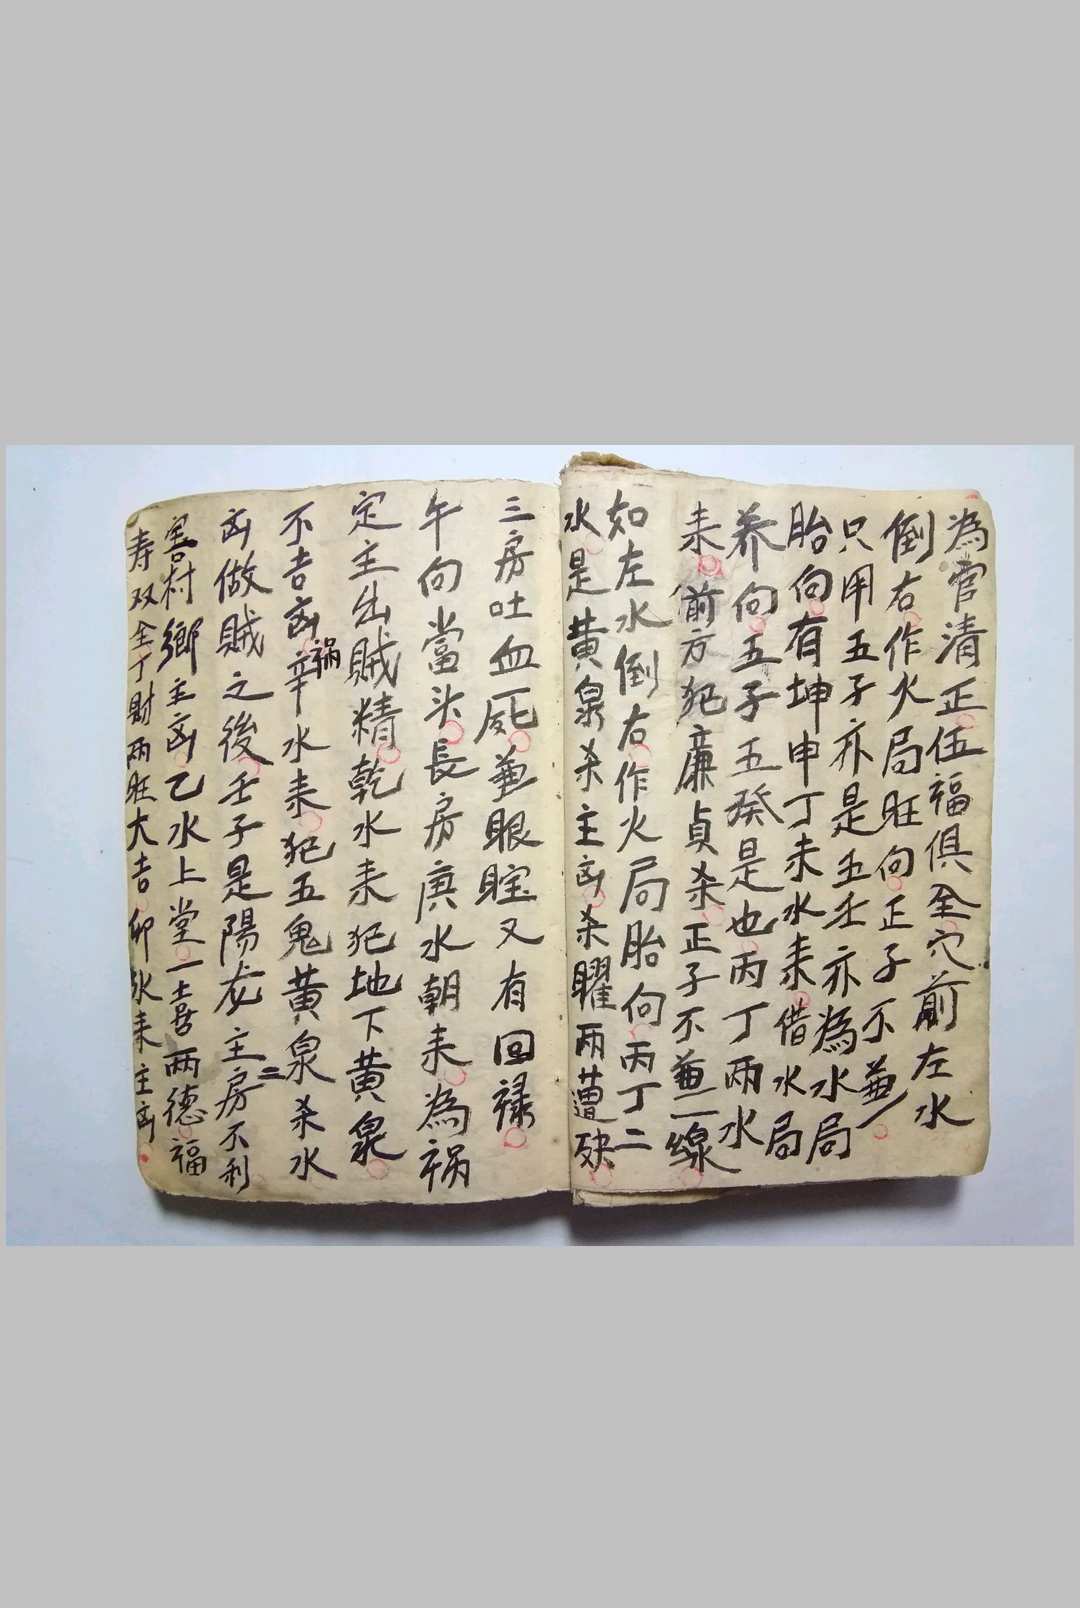 為官清正伍福俱全穴前左水
倒右作火局旺向正子不兼
只用五子亦是五壬亦為水局
胎向有坤申丁未水耒借水局
养向五子五癸是也丙丁兩水
耒前方犯廉貞杀正子不兼一線
如左水倒右作火局胎向丙丁二
水是黄泉杀主凶杀曜兩遭殃
三房吐血死兼眼瞎又有回祿
午向當头長房庚水朝耒為祸
定主出賊精乾水耒犯地下黄泉
不吉凶祸辛水耒犯五鬼黄泉杀水
凶做賊之後壬子是陽龙主二房不利
害村鄉主凶乙水上堂一喜兩德福
寿双全丁財兩旺大吉卯水耒主凶